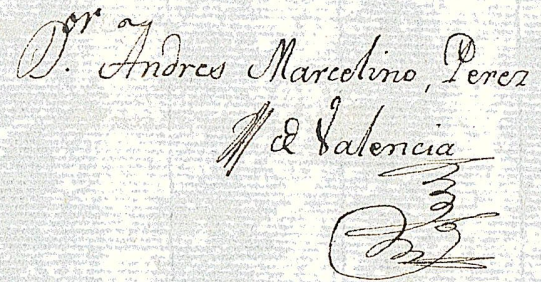 D.ᵒʳ Andres Marcelino, Perez
de Valencia